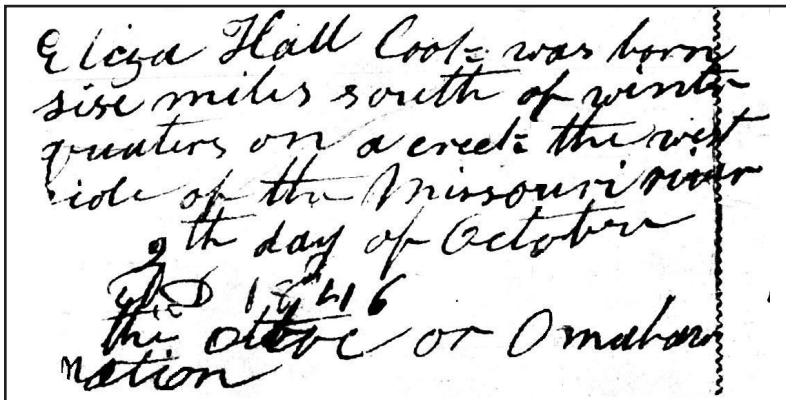 Eliza Hall Cook was born
sixe miles south of winter
quaters on a creek the west
side of the Missouri river
9th day of October
AD 1846
the ottoe or Omahaw
Nation